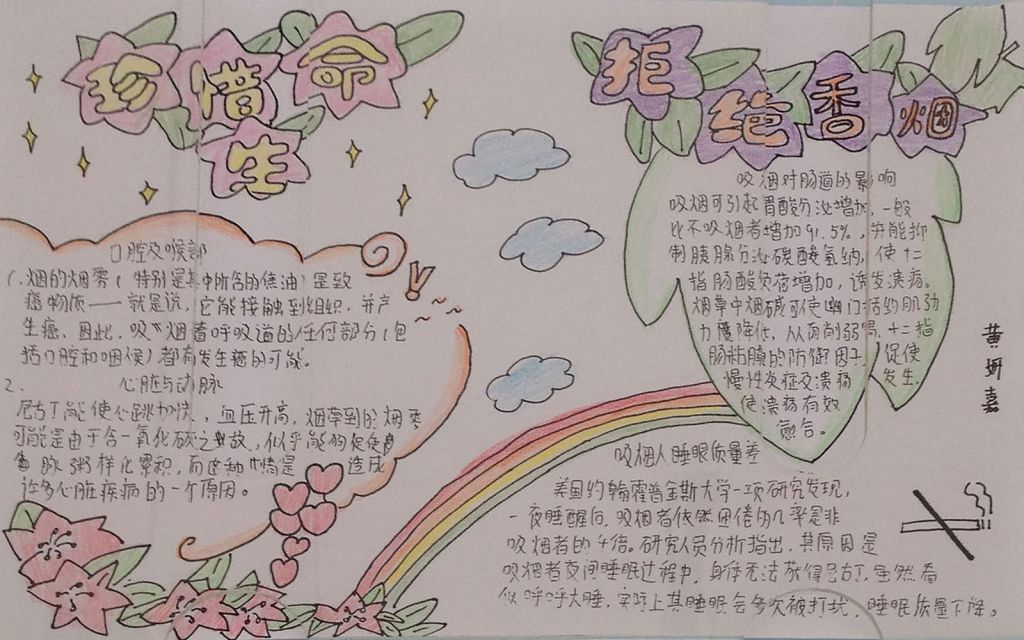 珍惜
命
生
口腔及喉部
1.烟的烟雾(特别是其中所含的焦油)是致
癌物质——就是说,它能接触到组织,并产
生癌。因此,吸烟者呼吸道的任何部分(包
括口腔和咽候)都有发生癌的可能。
2. 心脏与动脉
尼古丁能使心跳加快,血压升高,烟草的烟
可能是由于含一氧化碳之故,似乎能够促使
脉粥样化累积,而这种 造成
许多心脏疾病的一个原因。
拒绝香烟
吸烟对肠道的影响
吸烟可引起胃酸分泌增加,一般
比不吸烟者增加91.5%,并能抑
制胰腺分泌碳酸氢钠,使十二
指肠酸负荷增加,诱发溃疡。
烟草中烟碱可使幽门括约肌张
力慢降低,从而削弱胃,十二指
肠粘膜的防御因子,促使
慢性炎症交溃疡发生.
使溃疡有效
愈合。
黄妍嘉
吸烟人睡眠质量差
美国约翰霍普金斯大学一项研究发现,
一夜睡醒后,吸烟者依然困倦的几率是非
吸烟者的4倍。研究人员分析指出,其原因是
吸烟者夜间睡眠过程中,身体无法获得尼古丁,虽然看
似呼呼大睡,实际上其睡眠会多次被打扰,睡眠质量下降。